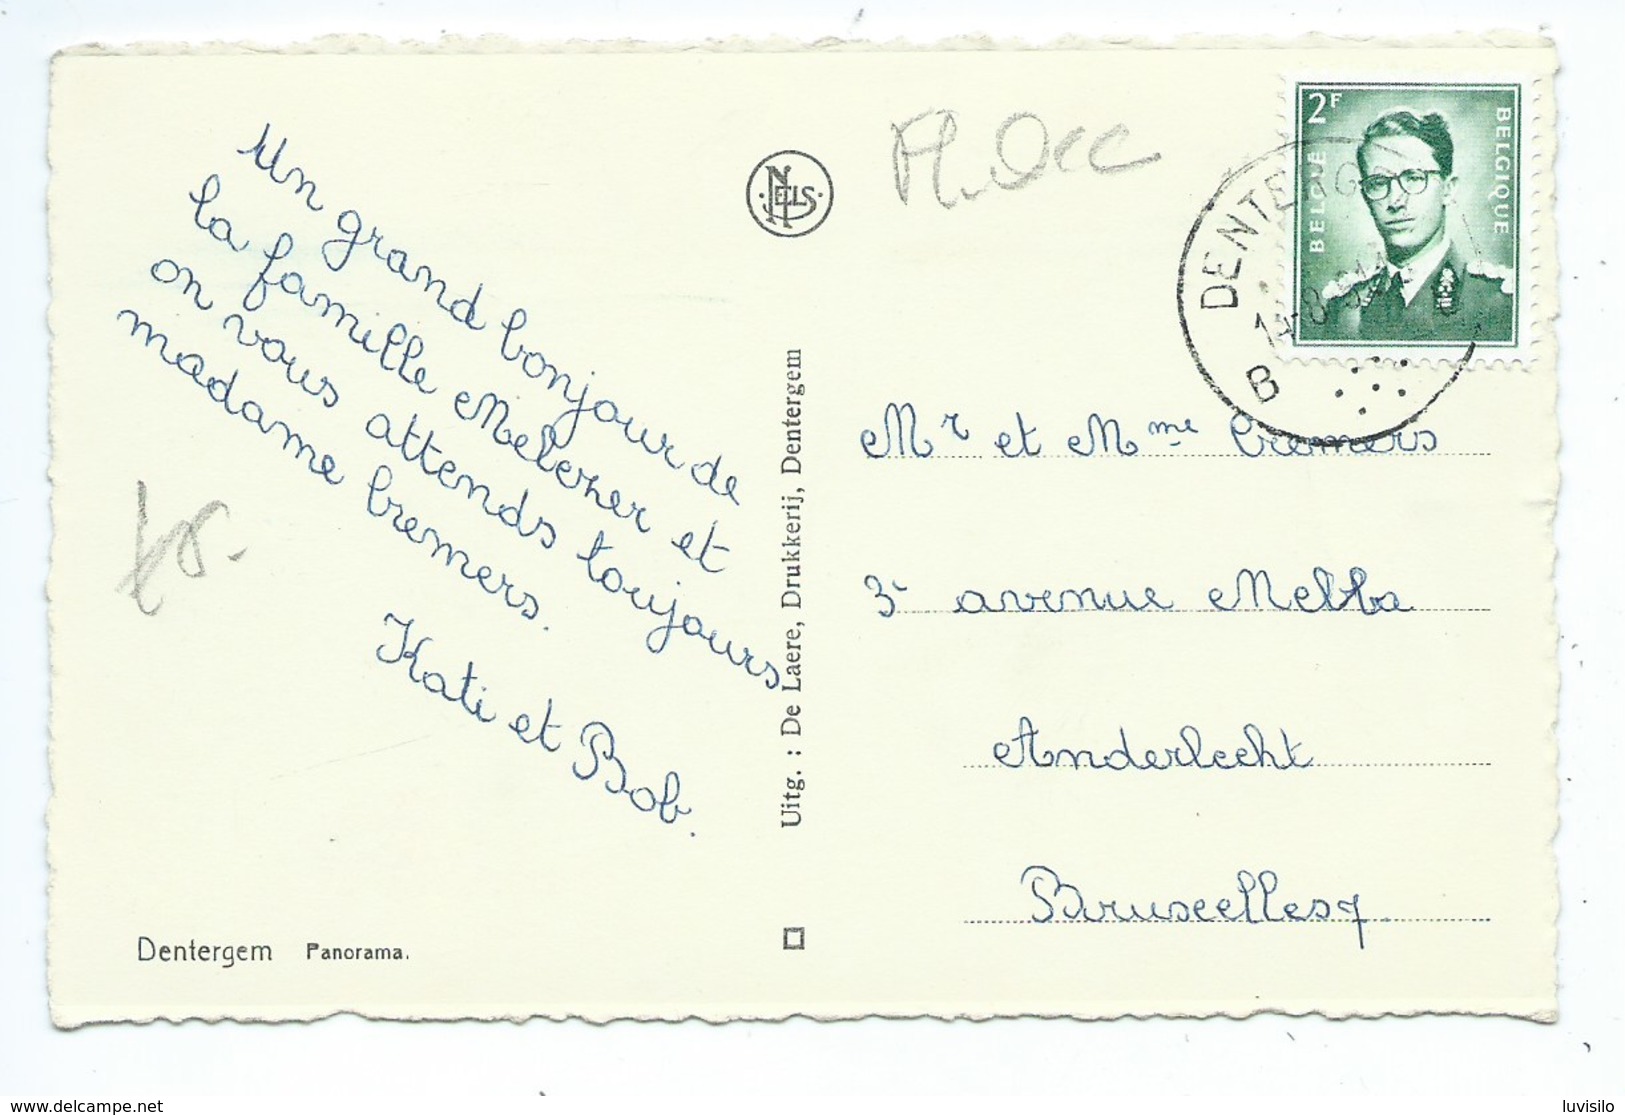 Un grand bonjour de
la famille Melexer et
on vous attends toujours
madame Cremers.
Kati et Bob.
Dentergem Panorama.
NELS
Uitg. : De Laere, Drukkerij, Dentergem
2F
BELGIË
BELGIQUE
DENTERG
B
Mr et Mme Cremers
3 avenue Melba
Anderlecht
Bruxelles 7.
www.delcampe.net
luvisilo